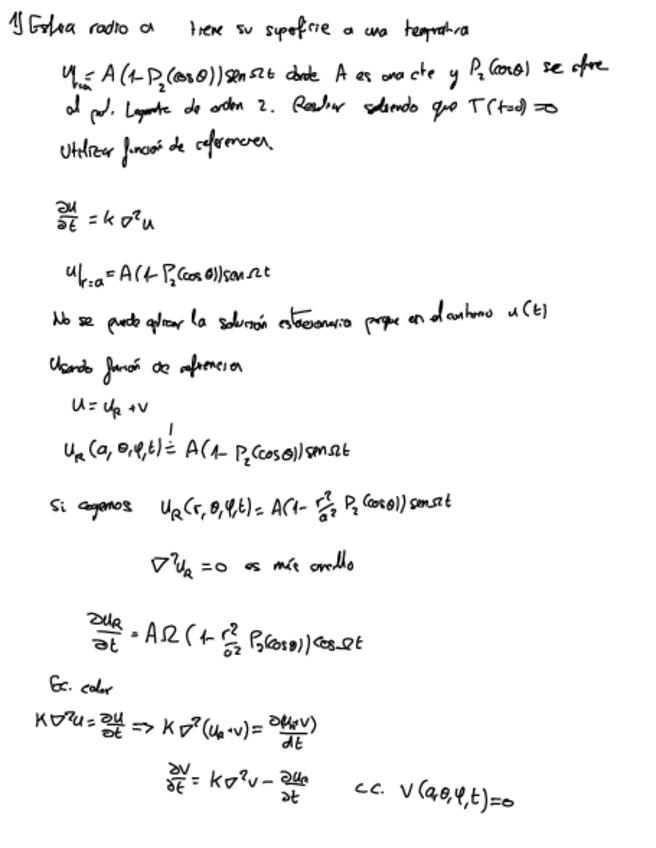 1) Esfera radio a tiene su superficie a una temperatura
u|r=a = A(1-P₂(cosθ)) sen Ωt donde A es una cte y P₂(cosθ) se refiere
al pol. Legendre de orden 2. Resolver sabiendo que T(t=0)=0
Utilizar función de referencia.
∂u/∂t = k ∇²u
u|r=a = A(1-P₂(cosθ)) sen Ωt
No se puede aplicar la solución estacionaria porque en el contorno u(t)
Usando función de referencia
u = u_R + v
u_R(a,θ,φ,t) =! A(1- P₂(cosθ)) sen Ωt
Si cogemos u_R(r,θ,φ,t) = A(1- r²/a² P₂(cosθ)) sen Ωt
∇²u_R = 0 es más sencillo
∂u_R/∂t = AΩ(1- r²/a² P₂(cosθ)) cos Ωt
Ec. calor
K∇²u = ∂u/∂t => K∇²(u_R+v) = ∂(u_R+v)/dt
∂v/∂t = k∇²v - ∂u_R/∂t c.c. v(a,θ,φ,t)=0